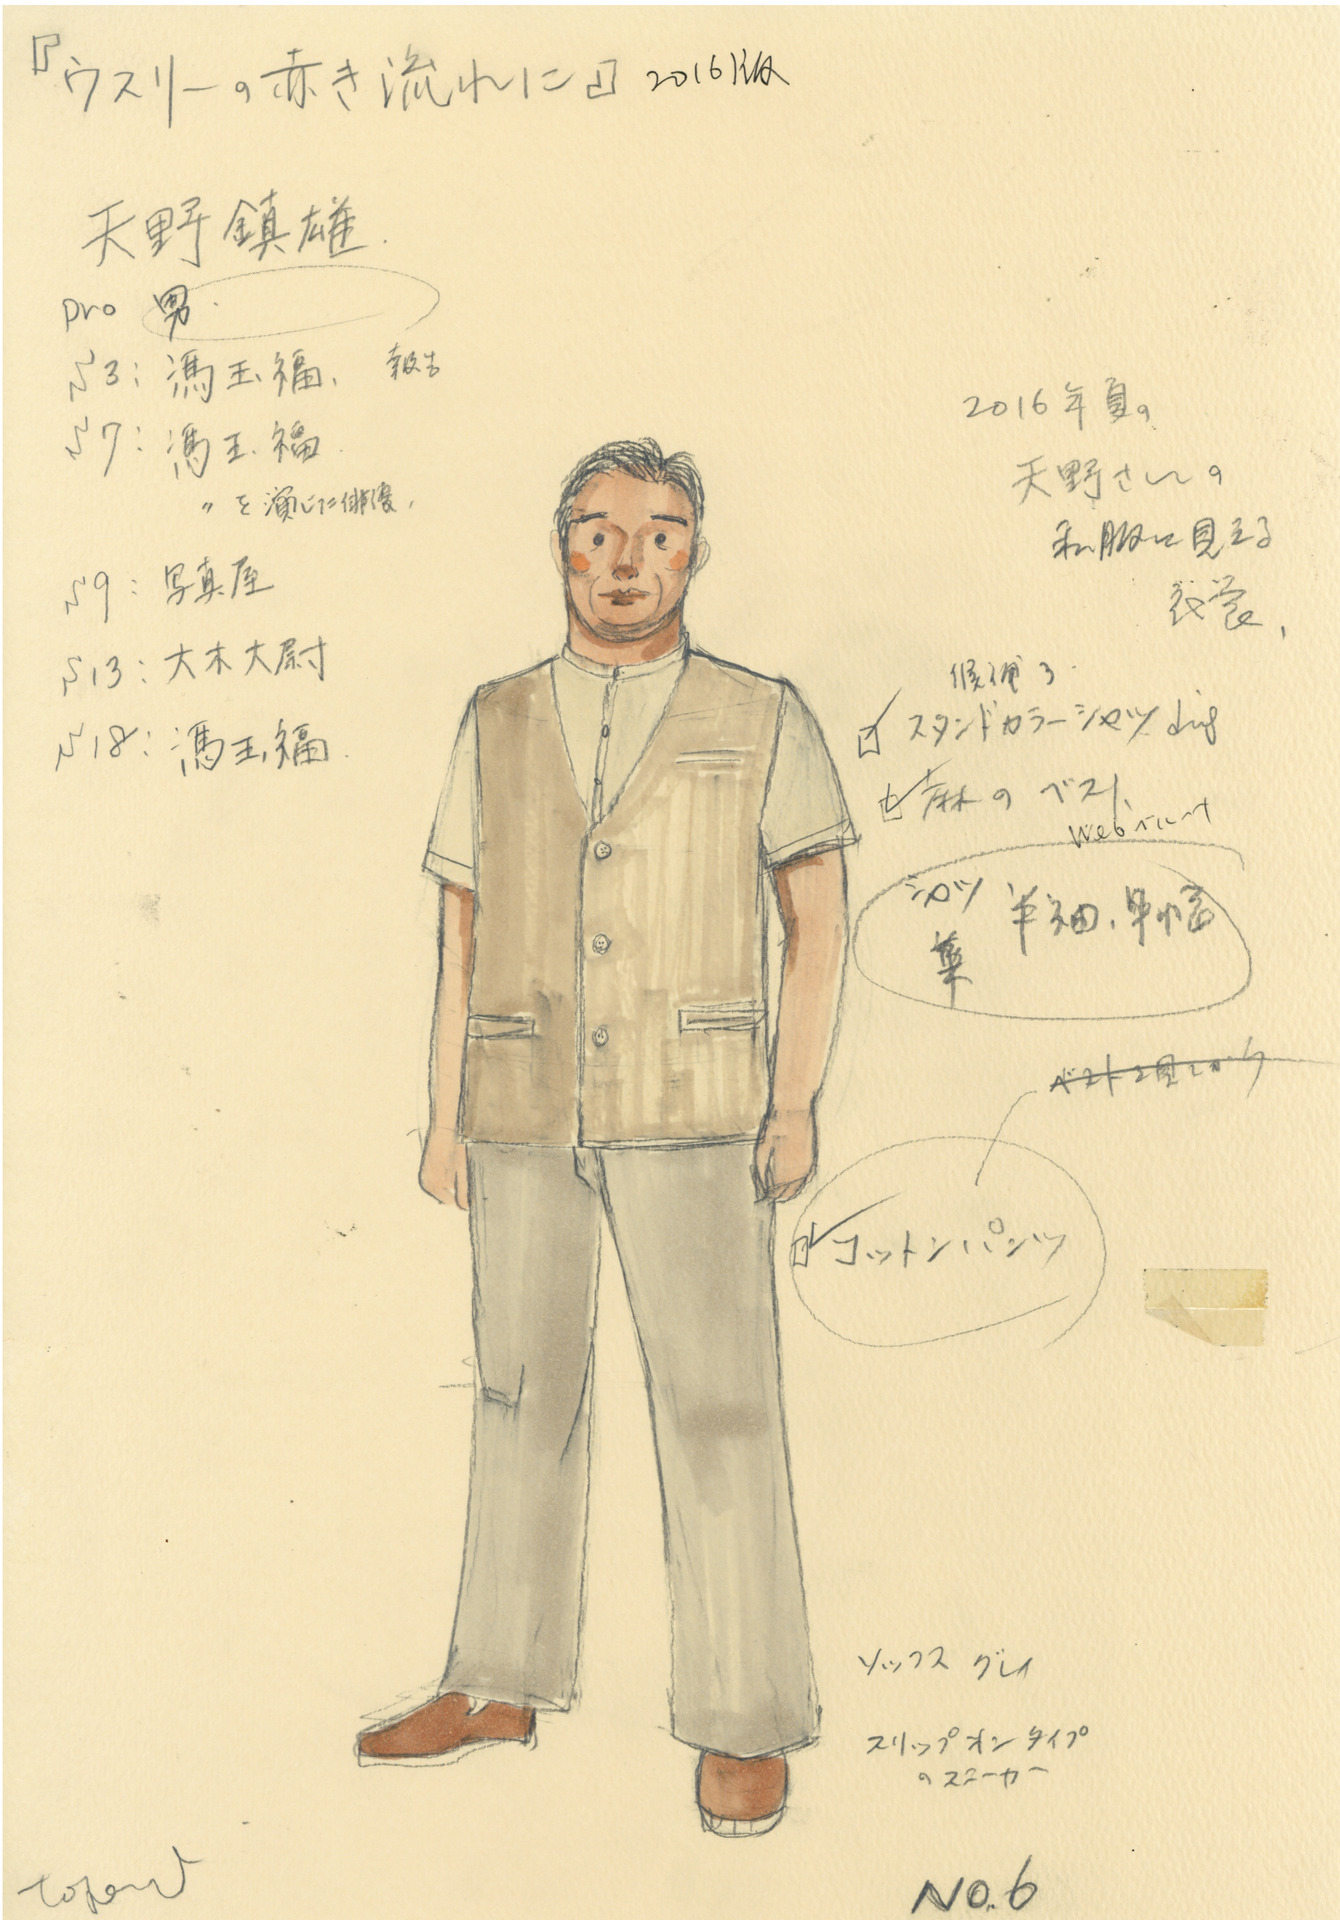 『ウスリーの赤き流れに』 2016版
天野鎮雄.
pro 男.
S3: 馮玉福、 報告
S7: 馮玉福.
〃を演じた俳優、
S9: 写真屋
S13: 大木大尉
S18: 馮玉福.
2016年夏の
天野さんの
私服に見える
衣裳、
候補3.
スタンドカラーシャツ
麻のベスト、
シャツ 半袖、
コットンパンツ
ソックス グレイ
スリップオンタイプ
のスニーカー
NO.6